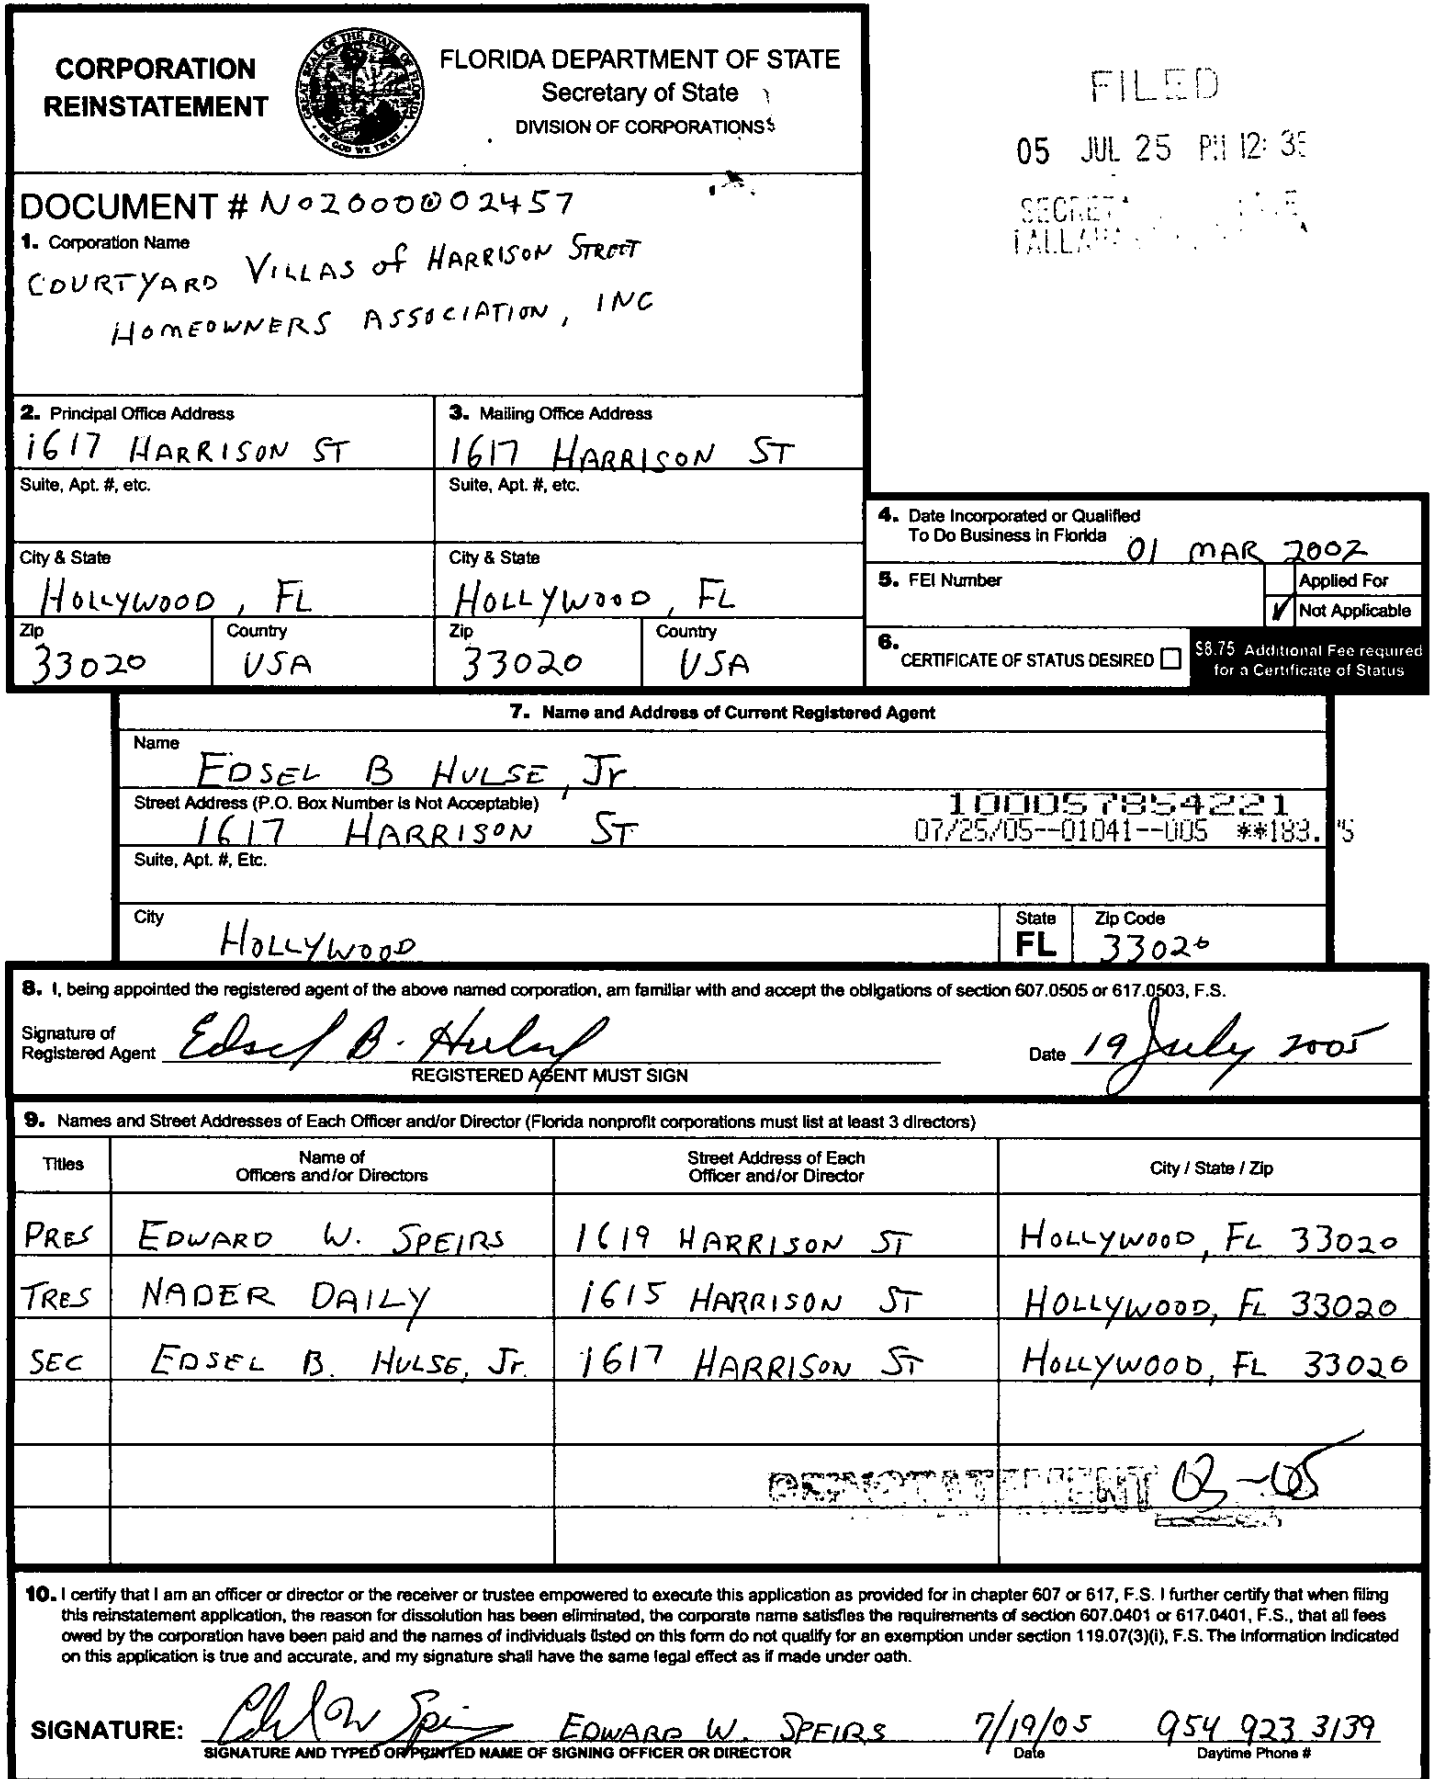 CORPORATION
REINSTATEMENT
GREAT SEAL OF THE STATE OF FLORIDA
IN GOD WE TRUST
FLORIDA DEPARTMENT OF STATE
Secretary of State
DIVISION OF CORPORATIONS
FILED
05 JUL 25 PM 12: 35
DOCUMENT # N02000002457
1. Corporation Name
COURTYARD VILLAS of HARRISON STREET
HOMEOWNERS ASSOCIATION, INC
2. Principal Office Address
1617 HARRISON ST
Suite, Apt. #, etc.
City & State
HOLLYWOOD, FL
Zip
33020
Country
USA
3. Mailing Office Address
1617 HARRISON ST
Suite, Apt. #, etc.
City & State
HOLLYWOOD, FL
Zip
33020
Country
USA
4. Date Incorporated or Qualified
To Do Business in Florida 01 MAR 2002
5. FEI Number
Applied For
Not Applicable
6. CERTIFICATE OF STATUS DESIRED
$8.75 Additional Fee required
for a Certificate of Status
7. Name and Address of Current Registered Agent
Name
EDSEL B HULSE, Jr
Street Address (P.O. Box Number is Not Acceptable)
1617 HARRISON ST
100057854221
07/25/05--01041--005 **183.
Suite, Apt. #, Etc.
City
HOLLYWOOD
State
FL
Zip Code
33020
8. I, being appointed the registered agent of the above named corporation, am familiar with and accept the obligations of section 607.0505 or 617.0503, F.S.
Signature of
Registered Agent Edsel B. Hulse
REGISTERED AGENT MUST SIGN
Date 19 July 2005
9. Names and Street Addresses of Each Officer and/or Director (Florida nonprofit corporations must list at least 3 directors)
Titles
Name of
Officers and/or Directors
Street Address of Each
Officer and/or Director
City / State / Zip
PRES EDWARD W. SPEIRS 1619 HARRISON ST HOLLYWOOD, FL 33020
TRES NADER DAILY 1615 HARRISON ST HOLLYWOOD, FL 33020
SEC EDSEL B. HULSE, Jr. 1617 HARRISON ST HOLLYWOOD, FL 33020
REINSTATEMENT 03-05
10. I certify that I am an officer or director or the receiver or trustee empowered to execute this application as provided for in chapter 607 or 617, F.S. I further certify that when filing
this reinstatement application, the reason for dissolution has been eliminated, the corporate name satisfies the requirements of section 607.0401 or 617.0401, F.S., that all fees
owed by the corporation have been paid and the names of individuals listed on this form do not qualify for an exemption under section 119.07(3)(i), F.S. The information indicated
on this application is true and accurate, and my signature shall have the same legal effect as if made under oath.
SIGNATURE: EDWARD W. SPEIRS 7/19/05 954 923 3139
SIGNATURE AND TYPED OR PRINTED NAME OF SIGNING OFFICER OR DIRECTOR
Date
Daytime Phone #